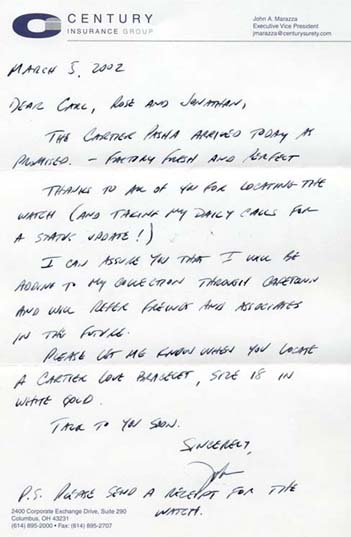 CENTURY
INSURANCE GROUP
John A. Marazza
Executive Vice President
jmarazza@centurysurety.com
MARCH 5, 2002
DEAR CARL, ROSE AND JONATHAN,
THE CARTIER PASHA ARRIVED TODAY AS
PROMISED. - FACTORY FRESH AND PERFECT
THANKS TO ALL OF YOU FOR LOCATING THE
WATCH (AND TAKING MY DAILY CALLS FOR
A STATUS UPDATE!)
I CAN ASSURE YOU THAT I WILL BE
ADDING TO MY COLLECTION THROUGH
AND WILL REFER FRIENDS AND ASSOCIATES
IN THE FUTURE.
PLEASE LET ME KNOW WHEN YOU LOCATE
A CARTIER LOVE BRACELET, SIZE 18 IN
WHITE GOLD.
TALK TO YOU SOON.
SINCERELY,
P.S. PLEASE SEND A RECEIPT FOR THE
WATCH.
2400 Corporate Exchange Drive, Suite 290
Columbus, OH 43231
(614) 895-2000 • Fax (614) 895-2707